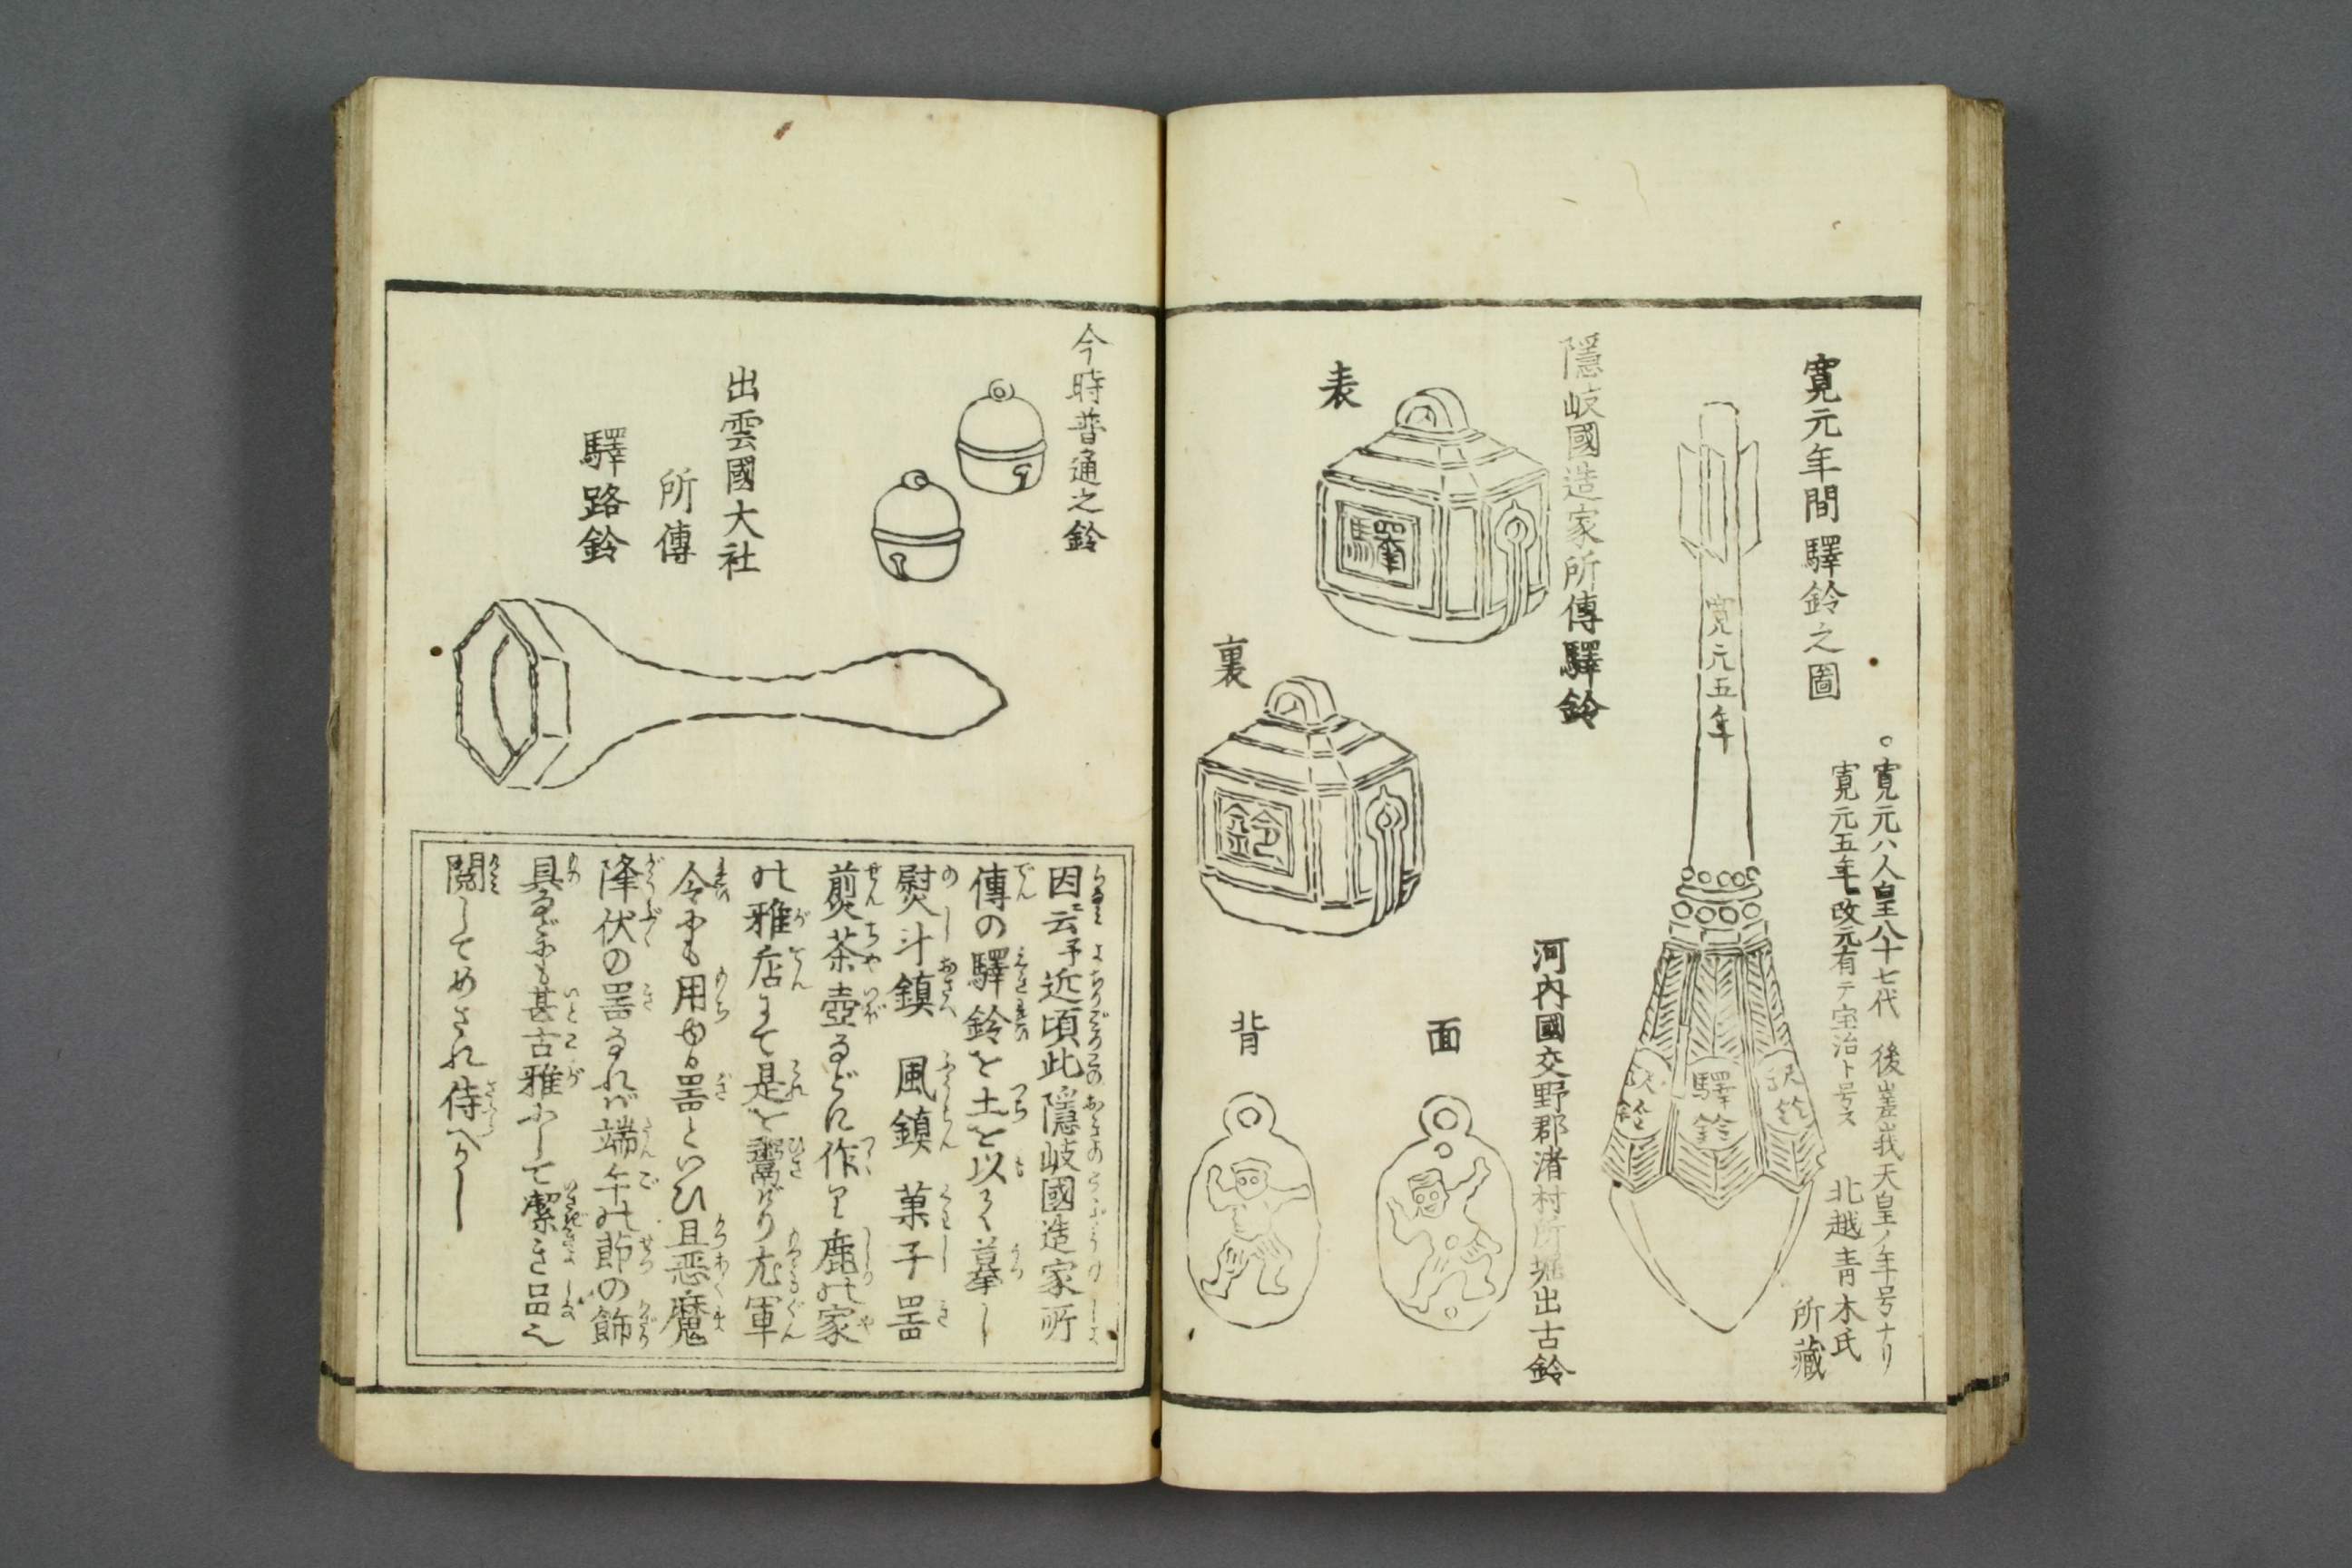 寛元年間驛鈴之圖
。寛元ハ人皇八十七代 後嵯峨天皇ノ年号ナリ
寛元五年改元有テ宝治ト号ス
北越青木氏
所藏
寛元五年
驛鈴
驛鈴
驛鈴
隱岐國造家所傳驛鈴
表
驛
裏
鈴
河内國交野郡渚村所堀出古鈴
面
背
今時普通之鈴
出雲國大社
所傳
驛路鈴
因云予近頃此隱岐國造家所
傳の驛鈴を土を以て摹し
熨斗鎮 風鎮 菓子噐
煎茶壺るどに作り鹿の家
の雅店まて是を鬻げり尤軍
令にも用ゆる噐といひ且悪魔
降伏の噐なれバ端午の節の飾
具などにも甚古雅にして潔き品也
閲してめされ侍へかし